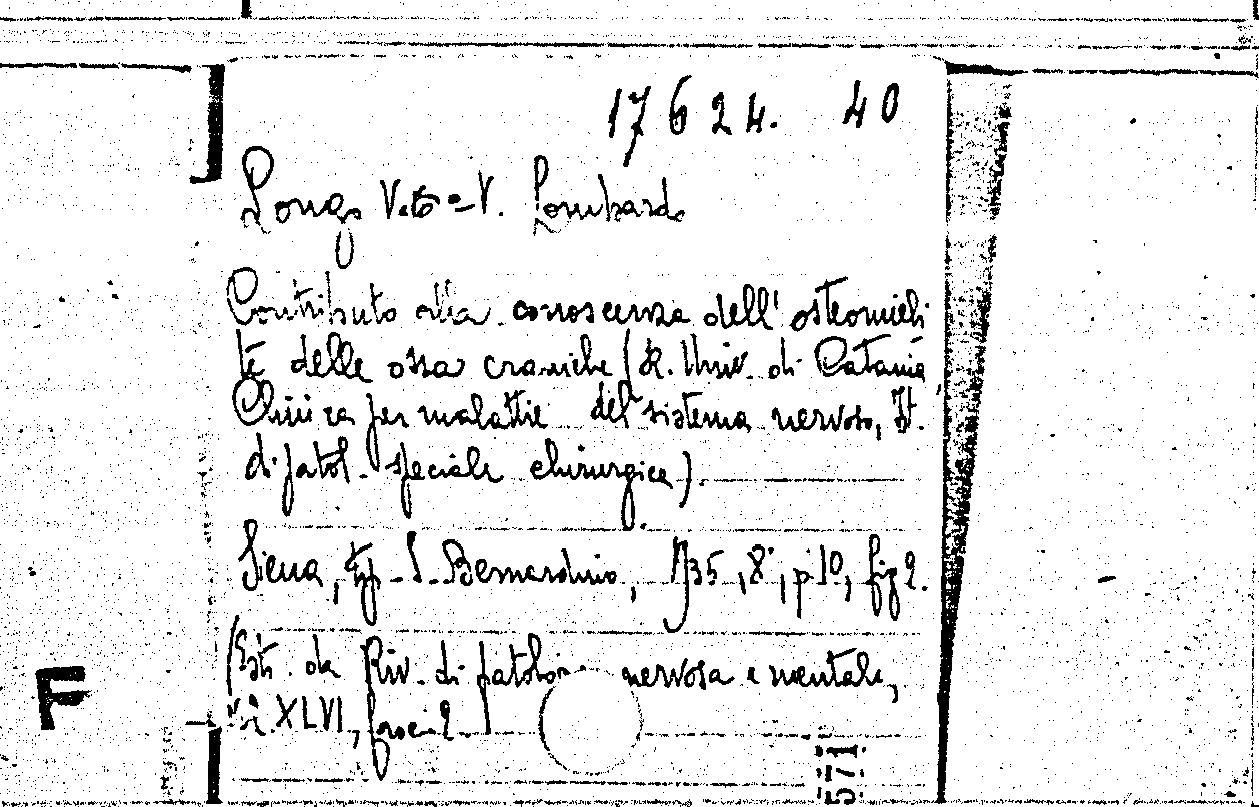 17624. 40
Longo Vito - V. Lombardo
Contributo alla conoscenza dell'osteomieli
te delle ossa craniche (R. Univ. di Catania,
Clinica per malattie del sistema nervoso, Ist.
di patol. speciale chirurgica).
Siena, tip. S. Bernardino, 1935, 8°, p. 10, fig 2.
(Estr. da Riv. di patolog nervosa e mentale,
vol. XLVI, fasc. 2
F
571